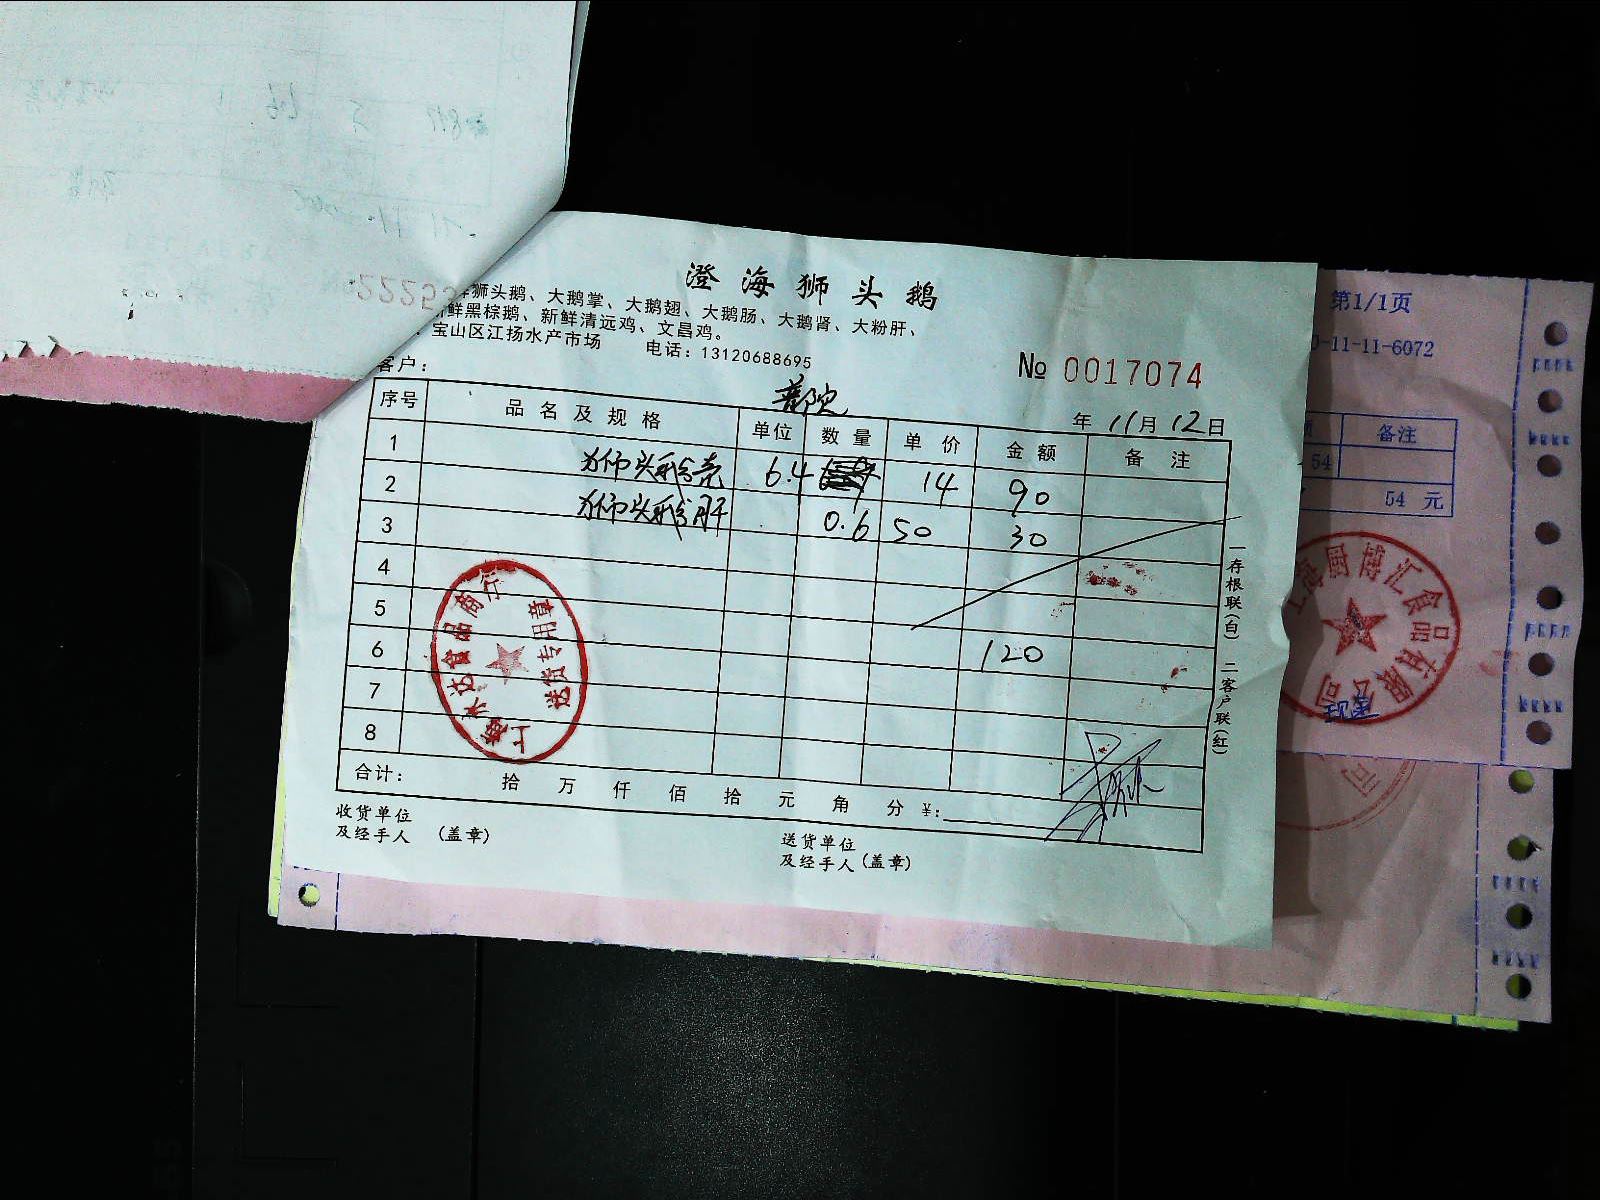 澄海狮头鹅
狮头鹅、大鹅掌、大鹅翅、大鹅肠、大鹅肾、大粉肝、
鲜黑棕鹅、新鲜清远鸡、文昌鸡。
宝山区江扬水产市场 电话：13120688695
客户：
№ 0017074
年 11月 12日
序号 品名及规格 单位 数量 单价 金额 备注
1 狮头鹅壳 6.4 14 90
2 狮头鹅肝 0.6 50 30
3
4
5
6 120
7
8
合计： 拾 万 仟 佰 拾 元 角 分 ¥:
收货单位
及经手人 (盖章)
送货单位
及经手人(盖章)
一存根联(白) 二客户联(红)
食品商行
送货专用章
第1/1页
-11-11-6072
备注
54
54 元
上海厨博汇食品有限公司
2225